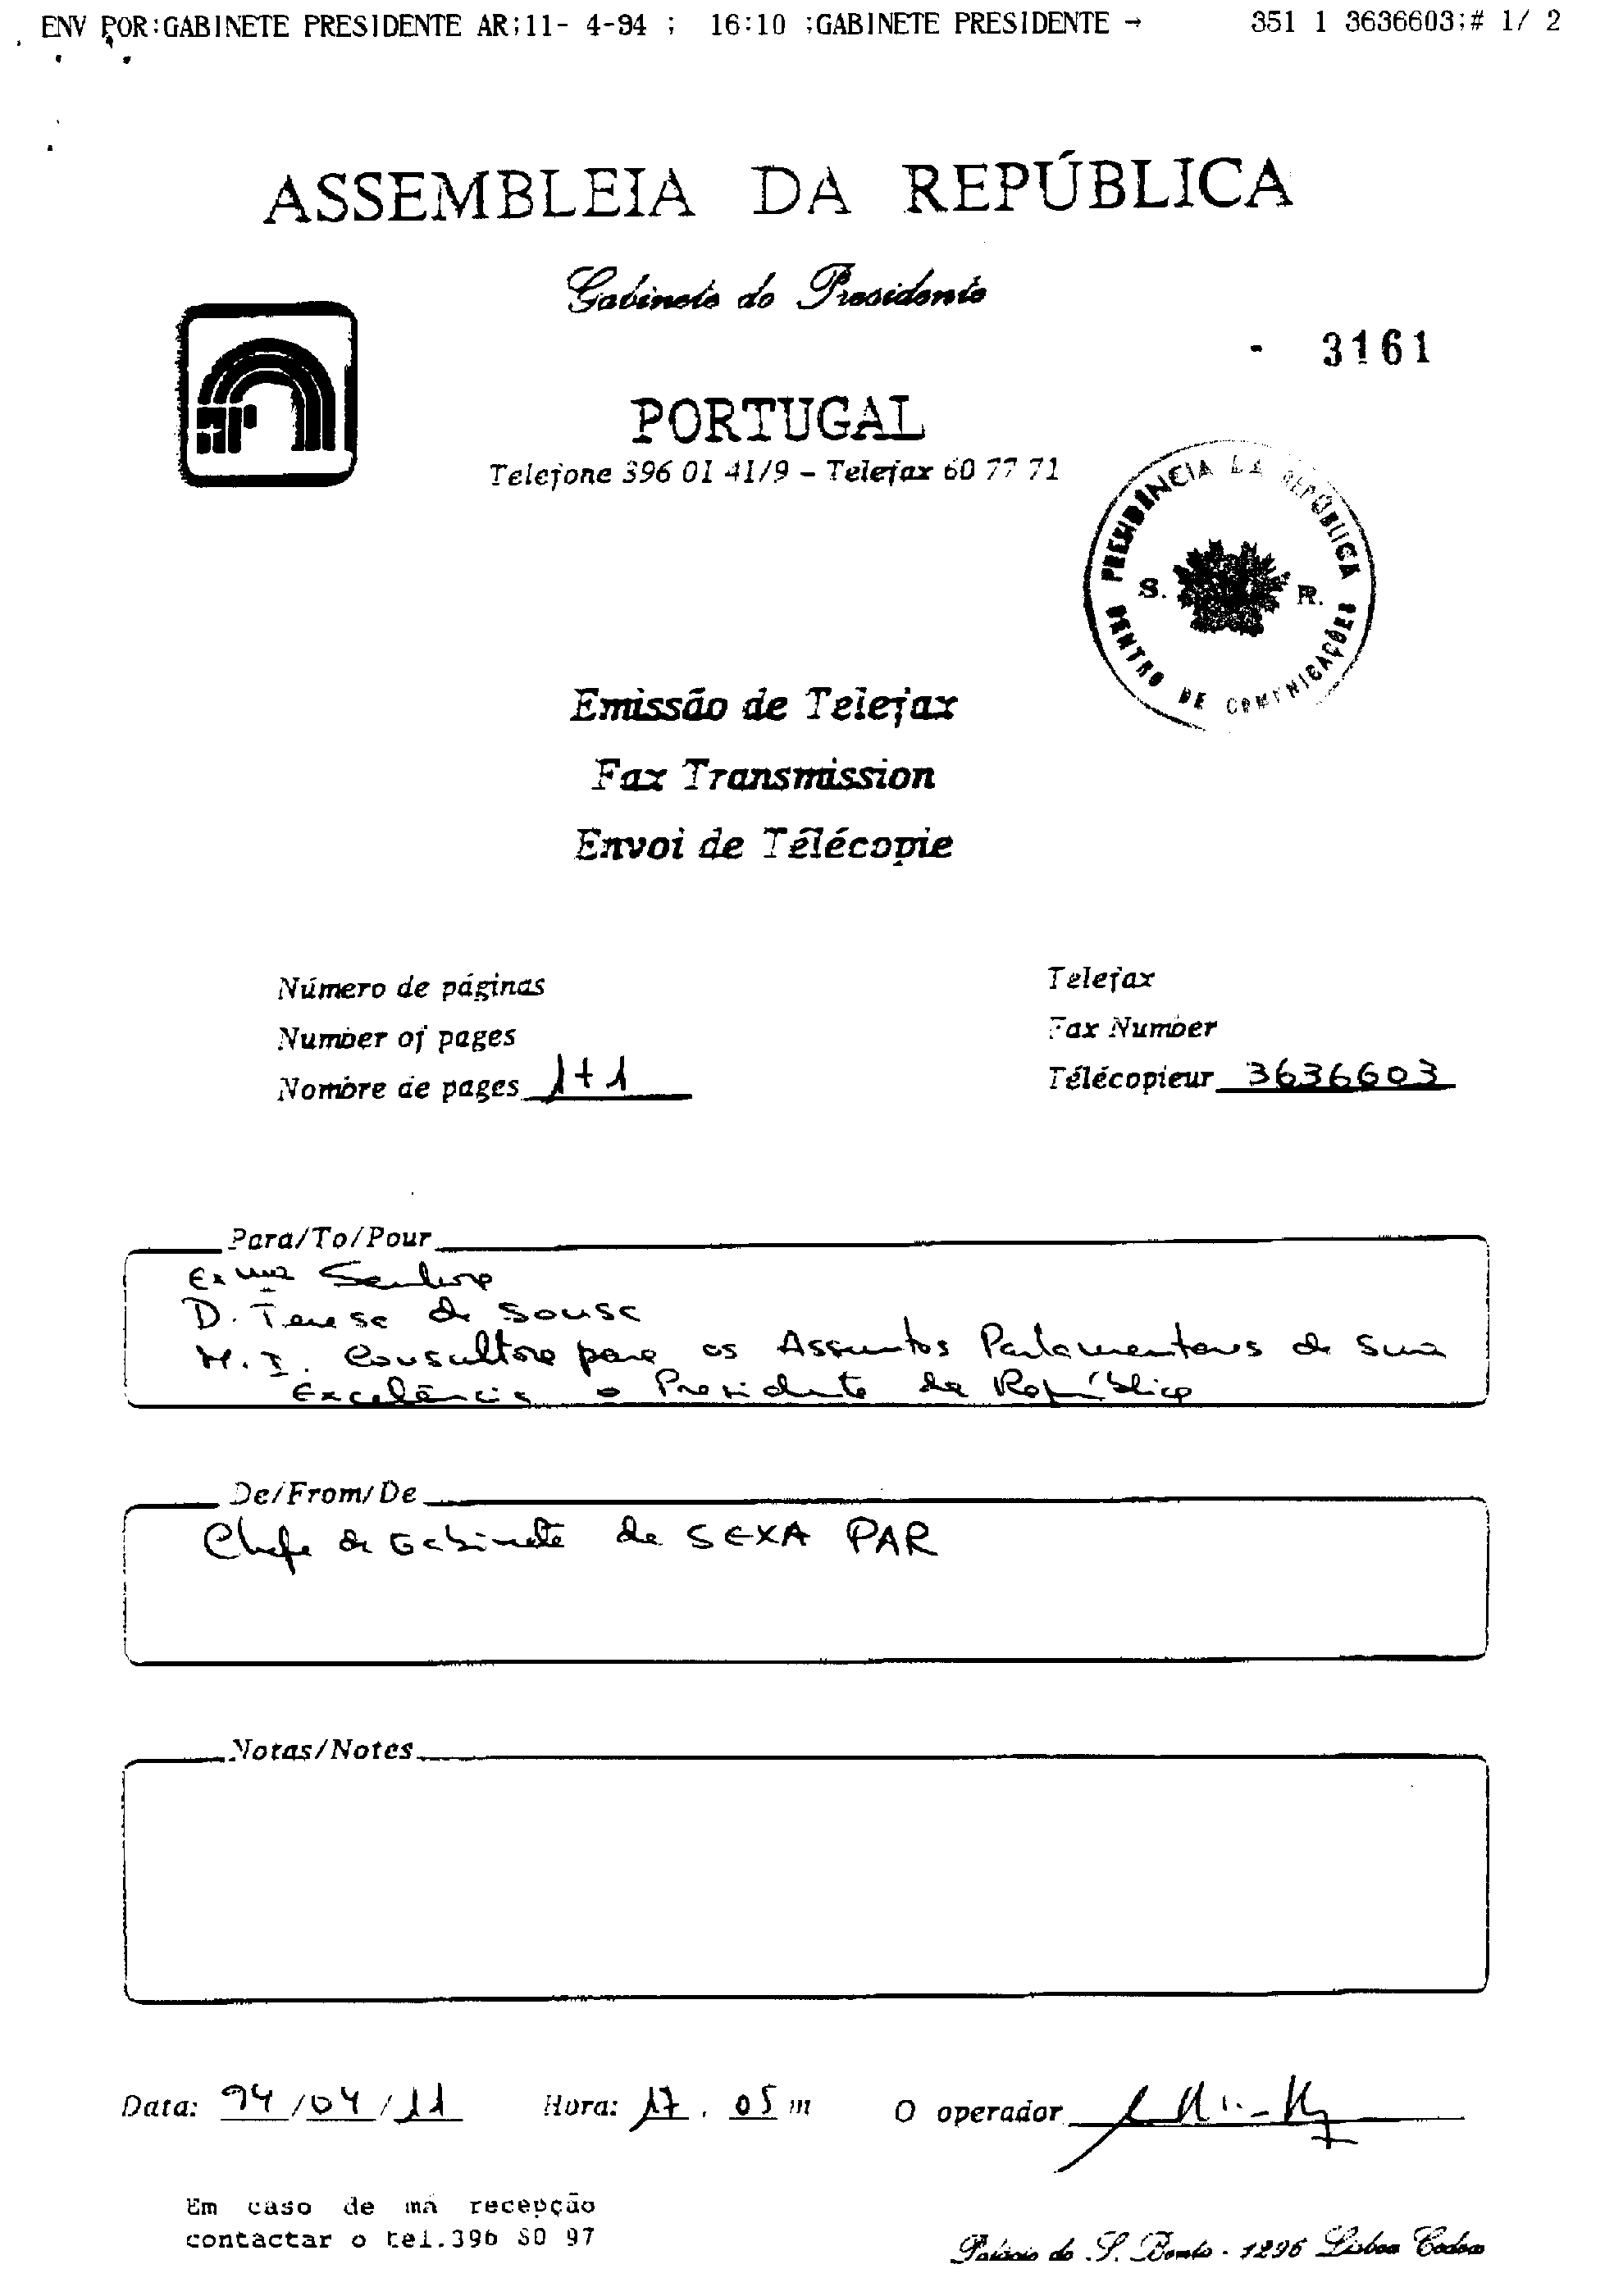 ENV POR:GABINETE PRESIDENTE AR;11- 4-94 ; 16:10 ;GABINETE PRESIDENTE → 351 1 3636603;# 1/ 2
ASSEMBLEIA DA REPÚBLICA
Gabinete do Presidente
- 3161
ar
PORTUGAL
Telefone 396 01 41/9 - Telefax 60 77 71
PRESIDÊNCIA DA REPÚBLICA
S. R.
CENTRO DE COMUNICAÇÕES
Emissão de Telefax
Fax Transmission
Envoi de Télécopie
Número de páginas
Number of pages
Nombre de pages 1+1
Telefax
Fax Number
Télécopieur 3636603
Para/To/Pour
Exma Senhora
D. Teresa de Sousa
M.I. Consultora para os Assuntos Parlamentares de Sua
Excelência o Presidente da República
De/From/De
Chefe de Gabinete de SEXA PAR
Notas/Notes
Data: 94/04/11 Hora: 17. 05 m O operador
Em caso de má recepção
contactar o tel.396 80 97
Palácio de S. Bento - 1296 Lisboa Codex